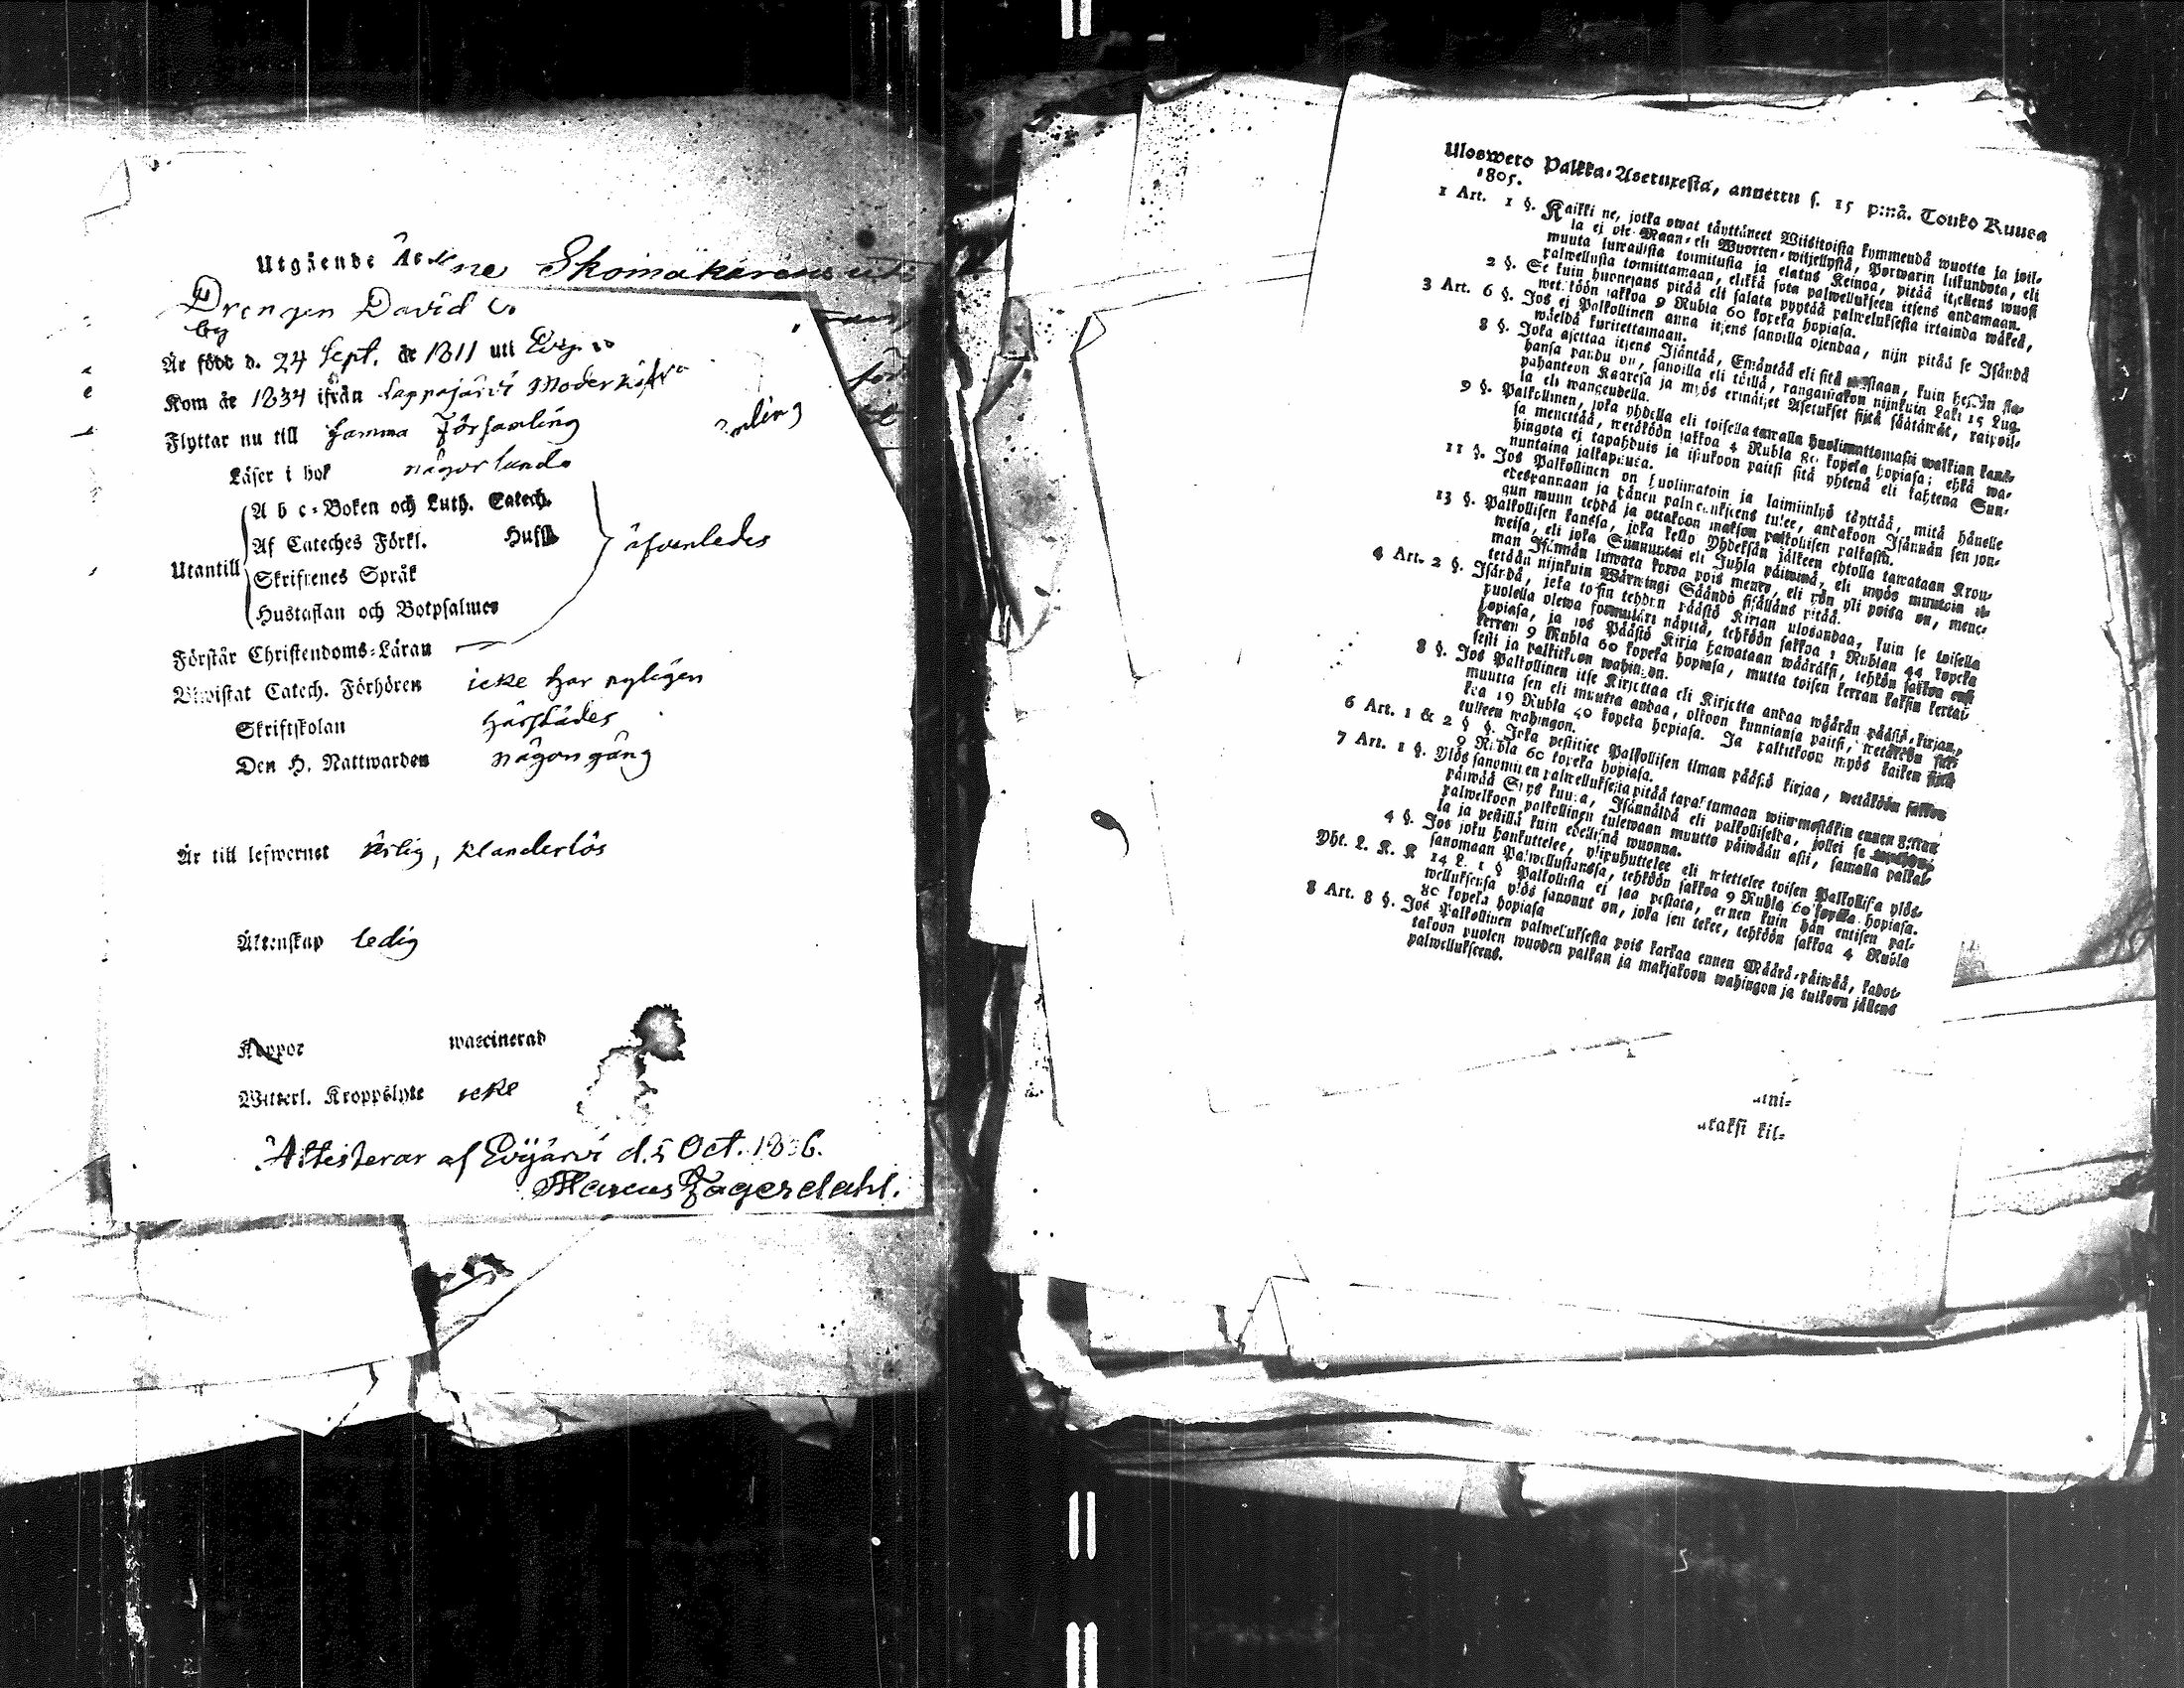 Utgående
Skomakarens
Drengen David
by
Är född d. 24 Sept. år 1811 uti
Kom år 1834 ifrån Lappajärvi Moderkyrko
Flyttar nu till samma Församling
Läser i bok någorlunda
A b c-Boken och Luth. Catech.
Af Cateches Förkl. Hust.
Utantill
Skriftenes Språk
Hustaflan och Botpsalmer
åfvenledes
Förstår Christendoms-Läran
Biwistat Catech. Förhören icke har nyligen
Skriftskolan härstädes
Den H. Nattwarden någon gång
Är till lefwernet ärlig, klanderlös
Äktenskap ledig
Koppor waccinerad
Witterl. Kroppslyte icke
Attesterar af Evijärvi d. 5 Oct.
Marcus Fagerdahl.
Uloswero Palkka-Asetuxesta, annettu s. 15 p:nä. Touko Kuusa
1805.
1 Art. 1 §. Kaikki ne, jotka owat täyttäneet Wiisitoista kymmendä wuotta ja joil-
la ej ole Maan- eli Wuorten-wiljellystä, Porwarin liikundota, eli
muuta luwallista toimitusta ja elatus Keinoa, pitää itzellens wuosi
palwellusta toimittamaan, elikkä sota palwellukseen itsens andamaan.
2 §. Se kuin huonejans pitää eli salata pyytää palweluksesta irtainda wäkeä,
wetäköön sakkoa 9 Rubla 60 kopeka hopiasa.
3 Art. 6 §. Jos ej Palkollinen anna itzens sanoilla ojendaa, nijn pitää se Isändä
wäeldä kuritettamaan.
8 §. Joka ajettaa itzens Isäntää, Emäntää eli sitä wastaan, kuin heidän sia-
hansa pandu on, sanoilla eli töillä, rangaistakon nijnkuin Laki 15 Lug.
pahanteon Kaaresa ja myös erinäiset Asetukset sijtä säätäwät, raipoil-
la eli wangeudella.
9 §. Palkollinen, joka yhdella eli toisella tawalla huolimattomasti walkian kans-
sa menettää, wetäköön sakkoa 4 Rubla 80 kopeka hopiasa; ehkä wa-
hingota ej tapahduis ja istukoon paitsi sitä yhtenä eli kahtena Sun-
nuntaina jalkapuusa.
11 §. Jos Palkollinen on huolimatoin ja laimiinlyö täyttää, mitä hänelle
edespannaan ja hänen palwelukseens tulee, andakoon Isännän sen jon-
gun muun tehdä ja ottakoon maksun palkollisen palkasta.
13 §. Palkollisen kansa, joka kello Yhdeksän jälkeen ehtolla tawataan Krou-
weisa, eli joka Sunnuntai eli Juhla päiwinä, eli myös muutoin il-
man Isännän luwata kotoa pois menee, eli yön yli poisa on, mene-
tetään nijnkuin Wärwingi Säändö sisälläns pitää.
4 Art. 2 §. Isändä, joka tohtin tehden päästö Kirjan ulosandaa, kuin se toisella
puolella olewa formulari näyttä, tehköön sakkoa 1 Rublan 44 kopeka
hopiasa, ja jos Päästö Kirja hawataan wääräksi, tehkön sakkoa ensi
kerran 9 Rubla 60 kopeka hopiasa, mutta toisen kerran kaksin kertai-
sesti ja palkitkoon wahingon.
8 §. Jos Palkollinen itse Kirjottaa eli Kirjotta andaa wäärän päästö-kirjan,
muutta sen eli muutta andaa, olkoon kunniansa paitsi, wetäköön sak-
koa 19 Rubla 40 kopeka hopiasa. Ja palkitkoon myös kaiken sijtä
tulleen wahingon.
6 Art. 1 & 2 § §. Joka pestitiee Palkollisen ilman päästö kirjaa, wetäköön sakkoa
9 Rubla 60 kopeka hopiasa.
7 Art. 1 §. Ylös sanominen palwelluksesta pitää tapahtumaan wiimestäkin ennen
päiwää Syys kuusa, Isännäldä eli palkolliselda, jollei se
palwelkoon palkollinen tulewaan muutto päiwään asti, samalla palkal-
la ja pestillä kuin edellisnä wuonna.
4 §. Jos joku houkuttelee, ylipuhuttelee eli wiettelee toisen Palkollisa ylös-
sanomaan Palwellustansa, tehköön sakkoa 9 Rubla 60 kopeka hopiasa.
Yht. L. K. K 14 L. 1 § Palkollista ej saa pestata, ennen kuin hän entisen pal-
welluksensa ylös sanonut on, joka sen tekee, tehköön sakkoa 4 Rubla
80 kopeka hopiasa
8 Art. 8 §. Jos Palkollinen palweluksesta pois karkaa ennen Määrä-päiwää, kadot-
takoon puolen wuoden palkan ja maksakoon wahingon ja tulkoon jällens
palwellukseens.